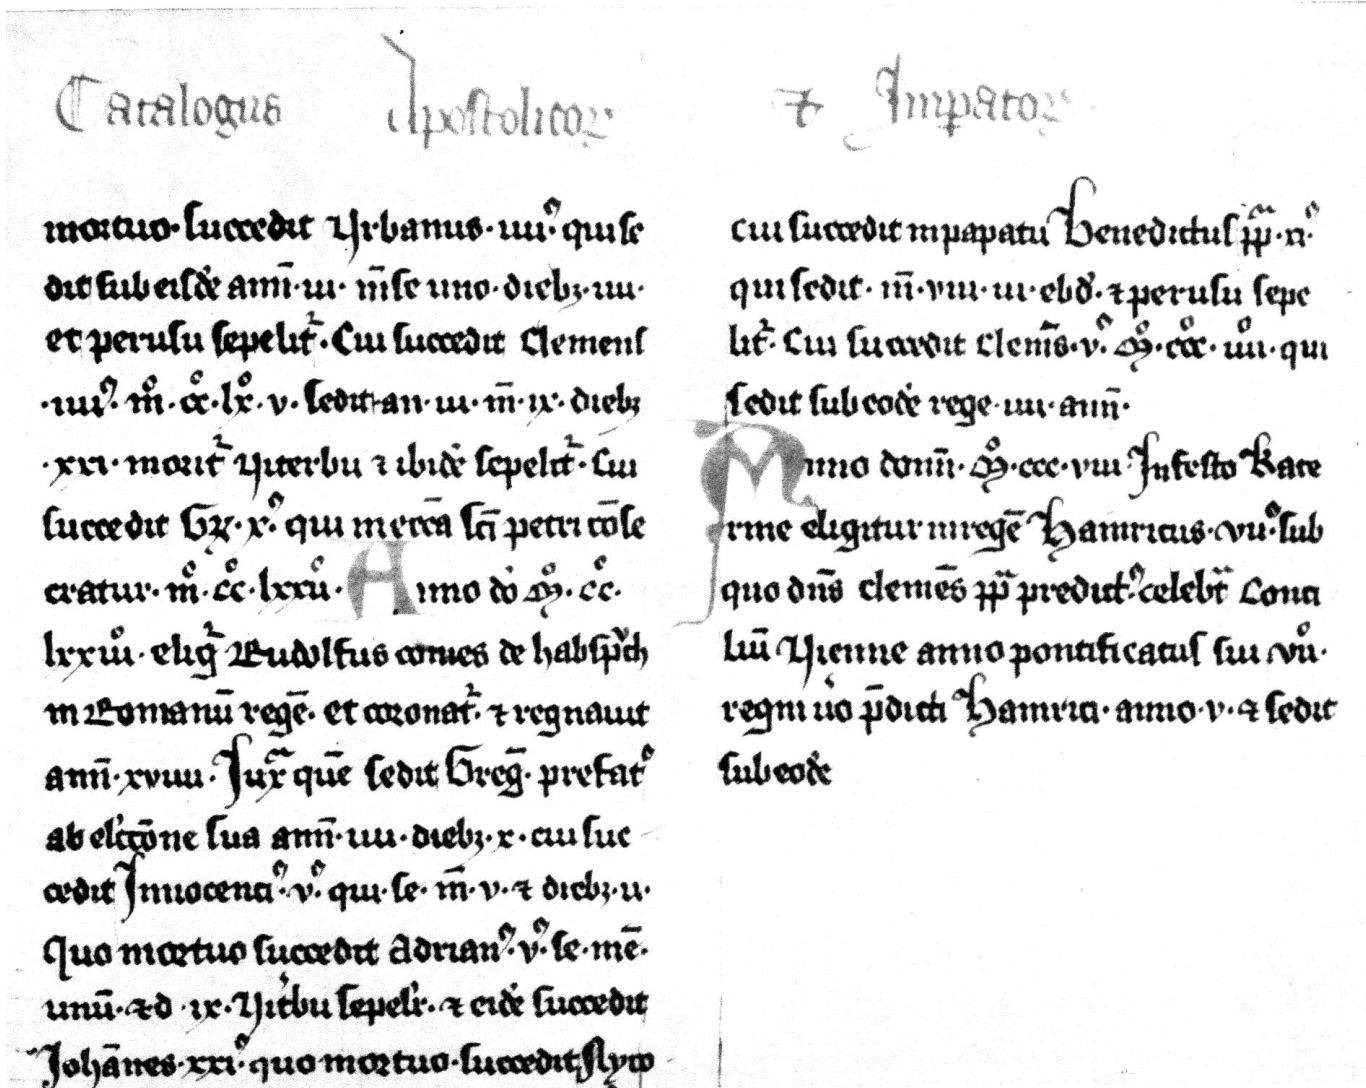 Catalogus Apostolicoꝝ ⁊ Imꝑatoꝝ
mortuo · succedit Vrbanus · iiii᷒ · qui se
dit sub eisdē annꝭ̄ · iii · m̄se uno · diebꝫ · iiii ·
et perusii sepelit᷑ · Cui succedit Clemens
· iiii᷒ · mͦ · ccͦ · lxͦ · v · sedit · an · iii · m̄ · ix · diebꝫ
· xxi · morit᷑ Viterbii ⁊ ibidē sepelit᷑ · Cui
succedit Gꝶ · x᷒ · qui in eccā sc̄i petri cōse
cratur · mͦ · ccͦ · lxxiiͦ · Anno dō Mͦ · ccͦ ·
lxxiiiͦ · elig᷑ Rudolfus comes de habspͨch
in Romanū regē · et coronat᷑ · ⁊ regnauit
ann̄ · xviiii · Juxͣ quē sedit Greḡ · prefat᷒
ab elc̄cōne sua ann̄ · iiii · diebꝫ · x · cui suc
cedit Innocenci᷒ · v᷒ · qui · se · m̄ · v · ⁊ diebꝫ · ii ·
Quo mortuo succedit Adrian᷒ · v᷒ · se · mē ·
unū · ⁊ d · ix · Vit̾bii sepelr̄ · ⁊ eidē succedit
Johānes · xxi᷒ · quo mortuo · succedit Nyco
cui succedit in papatu Benedictus pp̄ · xi᷒ ·
qui sedit · m̄ · viii · iii · ebd̾ · ⁊ perusii sepe
lit᷑ · Cui succedit Clem̄s · v᷒ · Mͦ · cccͦ · iiiiͦ · qui
sedit sub eodē rege · iiii · ann̄ ·
Anno domī · Mͦ · ccc · viii · In festo Kate
rine eligitur in regē Hainricus · vii᷒ · sub
quo dn̄s Clemēs pp̄ predict᷒ celebͣt Conci
liū Vienne anno pontificatus sui viiͦ ·
regni u̾o p̄dicti Hainrici · anno · v · ⁊ sedit
sub eodē